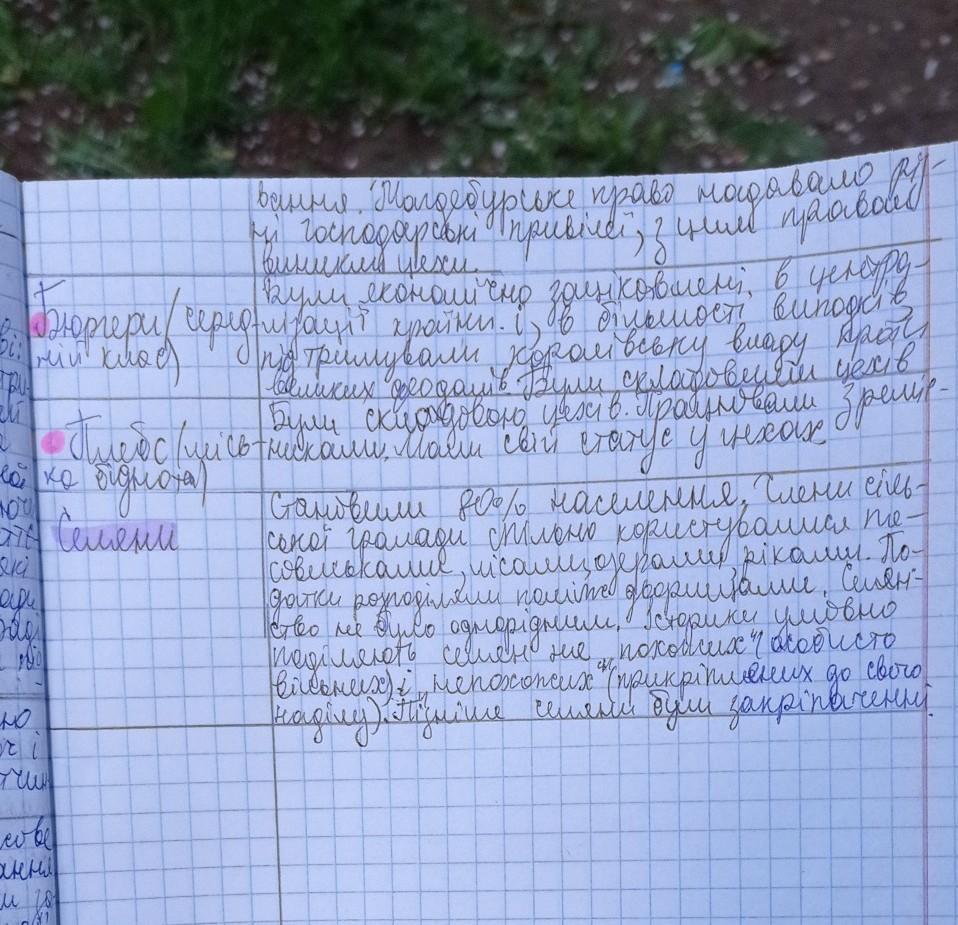 вання. Магдебурське право надавало рі-
ні господарські привілеї, з цим правом
виникли цехи.
Бюргери (серед-
ній клас)
Були економічно зацікавлені, в центра-
лізації країни. і, в більшості випадків
підтримували королівську владу проти
великих феодалів. Були складовими цехів
Плебс (місь-
ка біднота)
Були складовою цехів. Працювали з реміс-
никами. Мали свій статус у цехах
Селяни
Становили 80% населення. Члени сіль-
ської громади спільно користувалися па-
совиськами, лісами, озерами, ріками. По-
датки розподіляли поміж дворищами. Селян-
ство не було однорідним. Історики умовно
поділяють селян на „похожих" (особисто
вільних) і „непохожих" (прикріплених до свого
наділу). Пізніше селяни були закріпаченні.